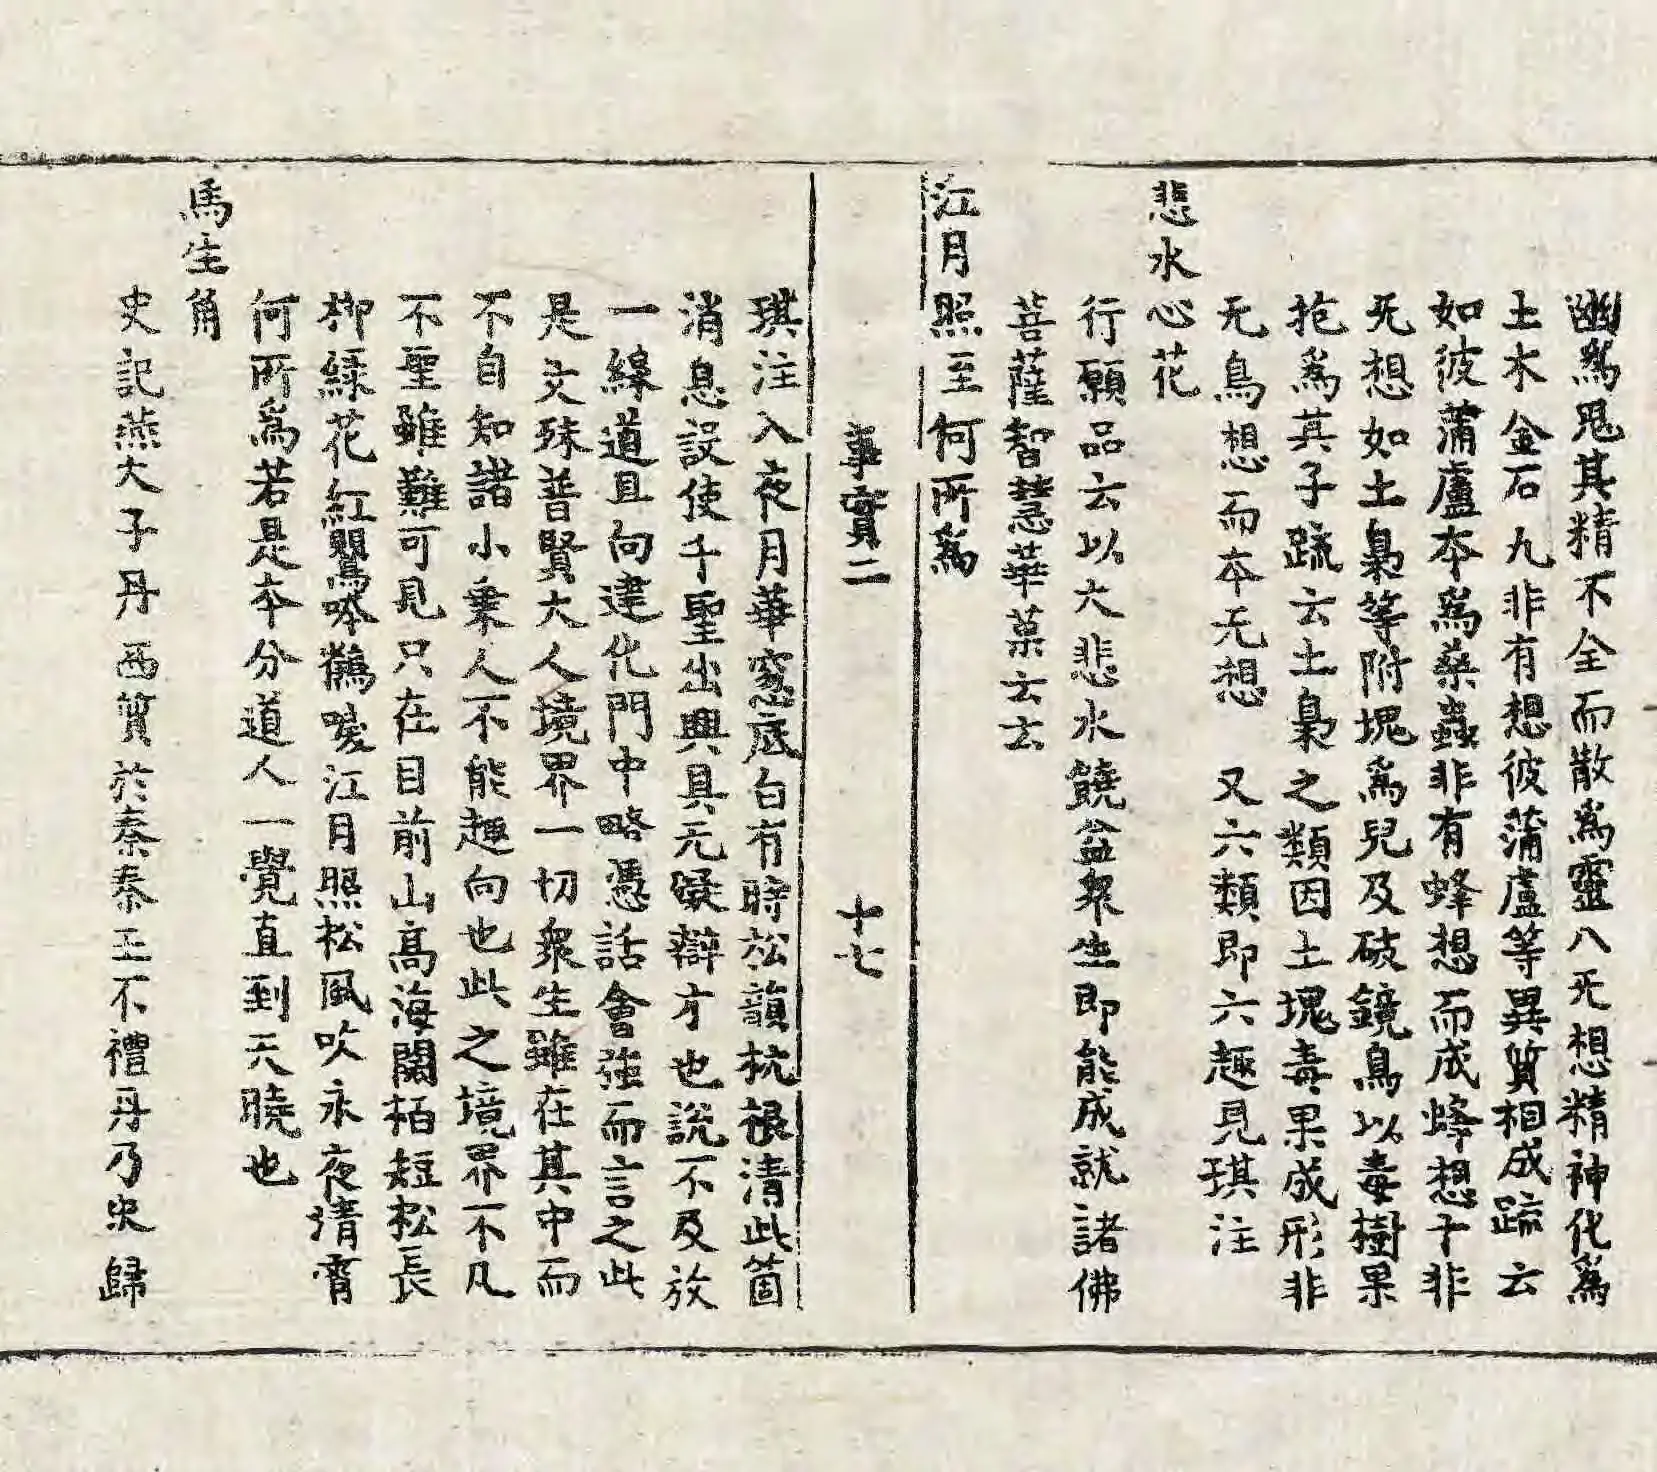 幽爲鬼其精不全而散爲靈八旡想精神化爲
土木金石九非有想彼蒲盧等異質相成䟽云
如彼蒲盧本爲桒蟲非有蜂想而成蜂想十非
旡想如土梟等附塊爲兒及破鏡鳥以毒樹果
抱爲其子䟽云土梟之類因土塊毒果成形非
旡鳥想而本旡想 又六類即六趣見琪注
悲水心花
行願品云以大悲水饒益衆生即能成就諸佛
菩薩智慧華菓云云
江月照至何所爲
事實二 十七
琪注入夜月華窓底白有時松韻枕根清此箇
消息設使千聖出興具无礙辯才也說不及放
一線道且向建化門中略憑話會強而言之此
是文殊普賢大人境界一切衆生雖在其中而
不自知諸小乗人不能趣向也此之境界不凡
不聖雖難可見只在目前山高海闊栢短松長
栁綠花紅鸎啼鶴唳江月照松風吹永夜清霄
何所爲若是本分道人一覺直到天曉也
馬生角
史記燕大子丹西質於秦秦王不禮丹乃求歸